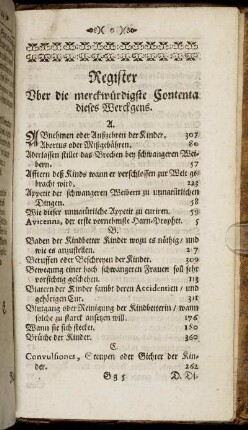 Register
Vber die merckwürdigste Contenta
dieses Werckgens.
A.
Abnehmen oder Außzehren der Kinder, 307
Abortus oder Mißgebähren. 80
Aderlassen stillet das Brechen bey schwangeren Weibern. 57
Afftern deß Kinds wann er verschlossen zur Welt gebracht wird. 223
Appetit der schwangeren Weibern zu unnatürlichen
Dingen. 58
Wie dieser unnatürliche Appetit zu curiren. 59
Avicenna, der erste vornehmste Harn-Prophet. 5
B.
Baden der Kindbetter Kinder wozu es nöthig / und
wie es anzustellen.
Beruffen oder Beschreyen der Kinder. 309
Bewegung einer hoch schwangeren Frauen soll sehr
vorsichtig geschehen. 113
Blattern der Kinder sambt deren Accidentien / und
gehörigen Cur. 311
Blutgang oder Reinigung der Kindbetterin / wann
solche zu starck ansetzen will. 176
Wann sie sich stecket. 180
Brüche der Kinder. 360
C.
Convulsiones, oder Gichter der Kinder. 262
Gg 5 D. Di-